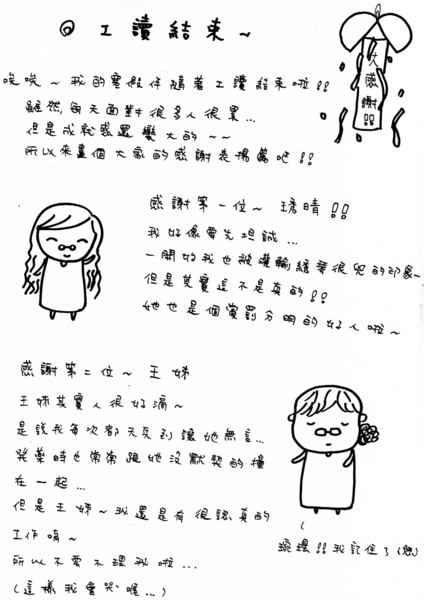 ◎ 工讀結束~
大感謝!!
唉唉~我的寒假伴隨著工讀結束啦!!
雖然,每天面對很多人很累...
但是成就感還蠻大的~~
所以來畫個大家的感謝表揚篇吧!!
感謝第一位~ 琇晴!!
我好像要先坦誠...
一開始我也被灌輸績華很兇的印象~
但是其實這不是真的!!
她也是個賞罰分明的好人啦~
感謝第二位~ 王姊
王姊其實人很好滴~
是說我每次都天兵到讓她無言...
發藥時也常常跟她沒默契的撞
在一起...
但是王姊~我還是有很認真的
工作唷~
所以不要不理我啦...
(這樣我會哭喔...)
琬理!!我記住了(怒)